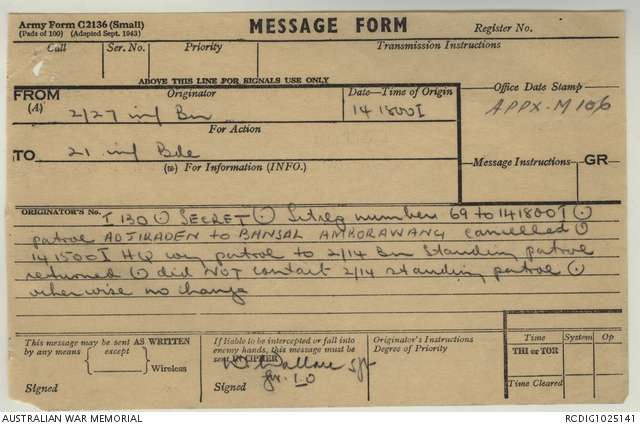 Army Form C2136 (Small)
(Pads of 100) (Adapted Sept. 1943)
MESSAGE FORM
Register No.
Call Ser. No. Priority Transmission Instructions
ABOVE THIS LINE FOR SIGNALS USE ONLY
FROM (A) Originator Date—Time of Origin Office Date Stamp
2/27 inf Bn 14 1800 I APPX. M 106
For Action
TO 21 inf Bde
(W) For Information (INFO.) Message Instructions GR
ORIGINATOR'S No. I 130 ⊙ SECRET ⊙ Sitrep number 69 to 141800 I ⊙
patrol ADJIRADEN to BANSAL AMBORAWANG cancelled ⊙
141500 I HQ coy patrol to 2/14 Bn Standing patrol
returned ⊙ did NOT contact 2/14 standing patrol ⊙
otherwise no change
This message may be sent AS WRITTEN
by any means except
Wireless
Signed
If liable to be intercepted or fall into
enemy hands, this message must be
sent IN CIPHER
Wallace
Signed for I O
Originator's Instructions
Degree of Priority
Time System Op
THI or TOR
Time Cleared
AUSTRALIAN WAR MEMORIAL RCDIG1025141